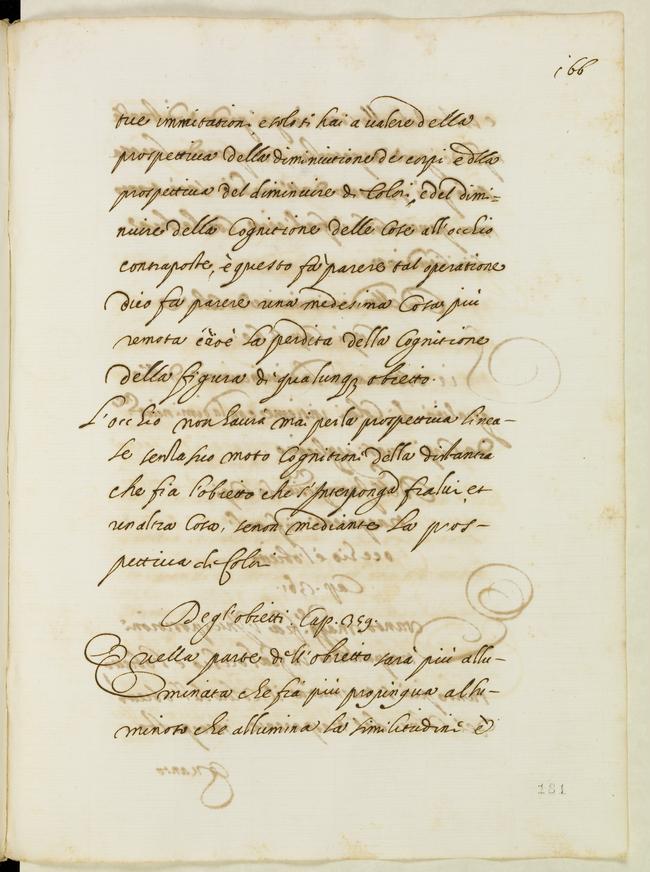 166
tue immitationi e solo ti hai a ualere della
prospettiua della diminuitione de corpi e dlla
prospettiua del diminuire d Colori, e del dimi-
nuire della Cognitione delle Cose all'occhio
contraposte, è questo fa parere tal operatione
dico fa parere una medesima Cosa più
remota cioè la perdita della Cognitione
della figura di qualunq obietto.
L'occhio non haura mai per la prospettiua linea-
le senza suo moto Cognitione della distantia
che fia l'obietto che s'Interponga fra lui, et
un altra Cosa, senon mediante la pros-
pettiua di Colori
Degl'obietti. Cap. 359.
Quella parte dell'obietto sarà più allu-
minata che fia più propinqua al lu-
minoso che allumina la similitudine è
181